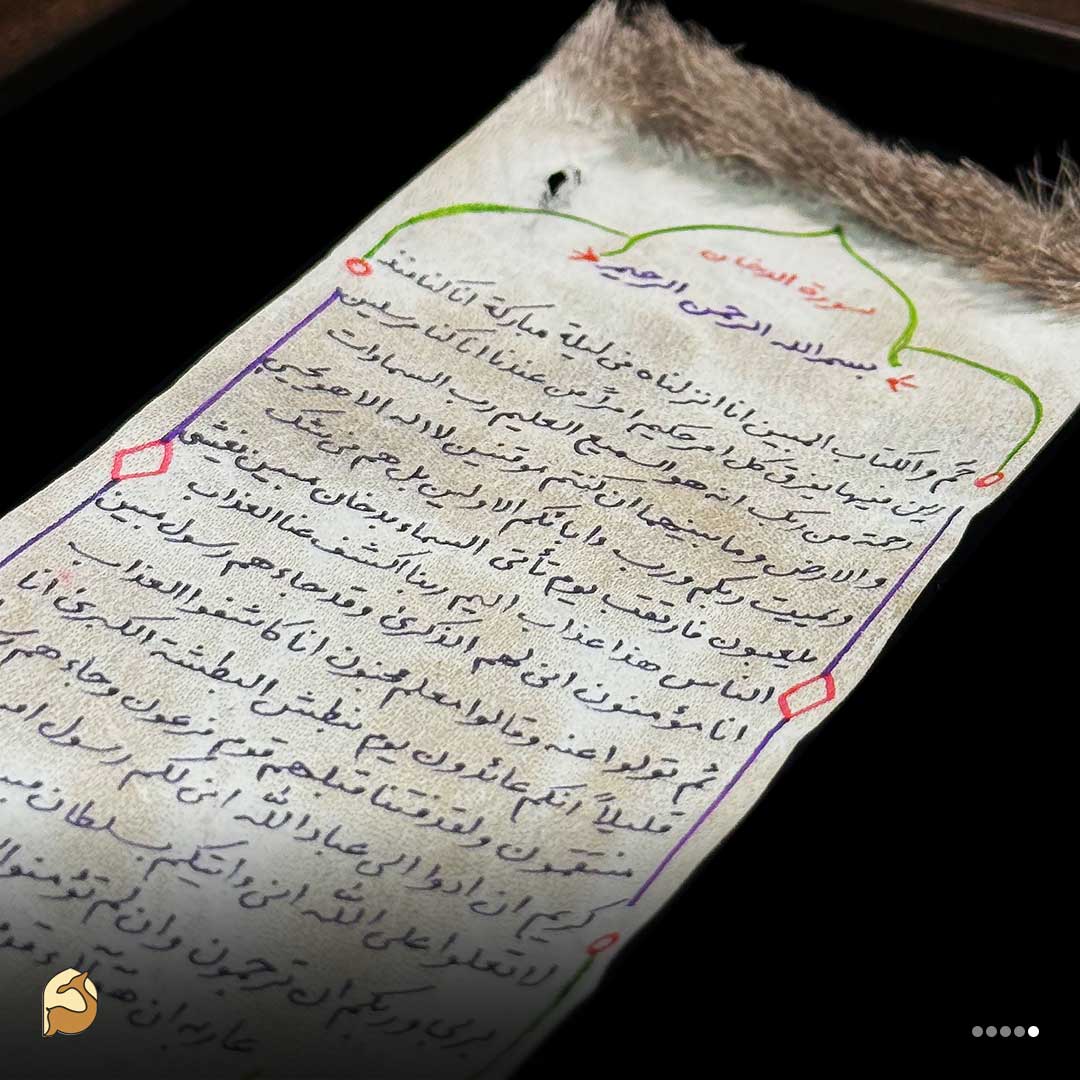 سورة الدخان
بسم الله الرحمن الرحيم
حم والكتاب المبين انا انزلناه في ليلة مباركة انا كنا منذ
رين فيها يفرق كل امر حكيم امراً من عندنا انا كنا مرسلين
رحمة من ربك انه هو السميع العليم رب السماوات
والارض وما بينهما ان كنتم موقنين لا اله الا هو يحيي
ويميت ربكم ورب ابائكم الاولين بل هم في شك
يلعبون فارتقب يوم تأتي السماء بدخان مبين يغشى
الناس هذا عذاب اليم ربنا اكشف عنا العذاب
انا مؤمنون انى لهم الذكرى وقد جاءهم رسول مبين
ثم تولوا عنه وقالوا معلم مجنون انا كاشفوا العذاب
قليلاً انكم عائدون يوم نبطش البطشة الكبرى انا
منتقمون ولقد فتنا قبلهم قوم فرعون وجاءهم
كريم ان ادوا الي عباد الله اني لكم رسول
لا تعلوا على الله اني داتيكم بسلطان
بربي وربكم ان ترجمون وان لم تؤمنوا
ربه ان هؤلاء